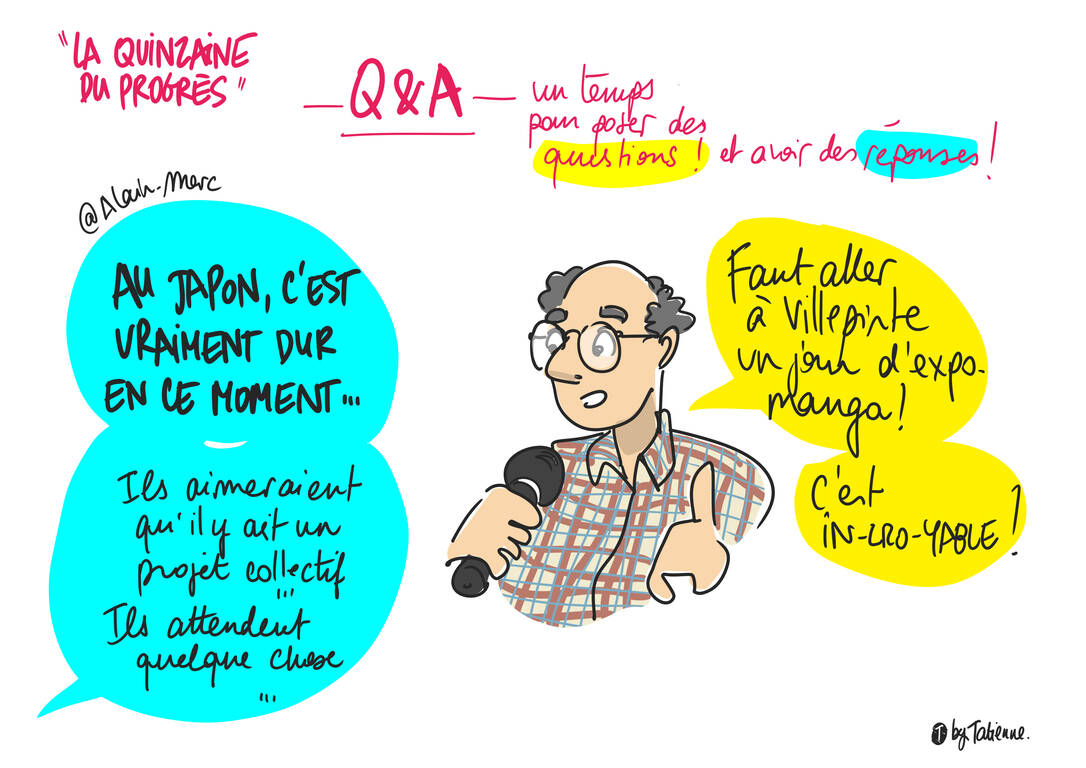 "LA QUINZAINE
DU PROGRÈS"
Q&A
un temps
pour poser des
questions ! et avoir des réponses !
@Alain-Merc
AU JAPON, C'EST
VRAIMENT DUR
EN CE MOMENT...
Ils aimeraient
qu'il y ait un
projet collectif
...
Ils attendent
quelque chose
...
Faut aller
à Villepinte
un jour d'expo-
manga !
C'est
IN-CRO-YABLE !
T by Tatienne.